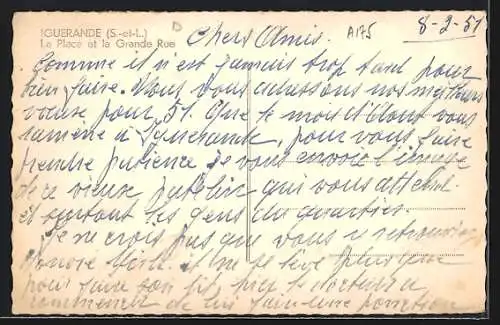 IGUERANDE (S.-et-L.)
La Place et la Grande Rue
A175
8-2-51
Chers Amis.
Comme il n'est jamais trop tard pour
bien faire. Nous vous adressons nos meilleurs
vœux pour 51. Que le mois d'Août vous
ramène à Iguerande, pour vous faire
prendre patience je vous envoie l'image
de ce vieux patelin qui vous attend
et surtout les gens du quartier.
Je ne crois pas que vous y retrouviez
il ne se lève plus que
pour faire son lit,
de lui faire une ponction